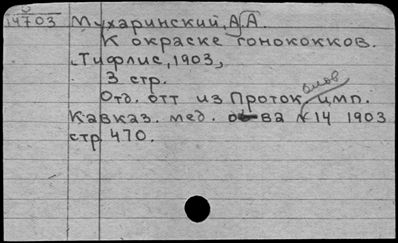 14703 Мухаринский, А.А.
К окраске гонококков.
Тифлис, 1903,
3 стр.
Отд. отт из Протоколов имп.
Кавказ. мед. о-ва №14 1903
стр 470.